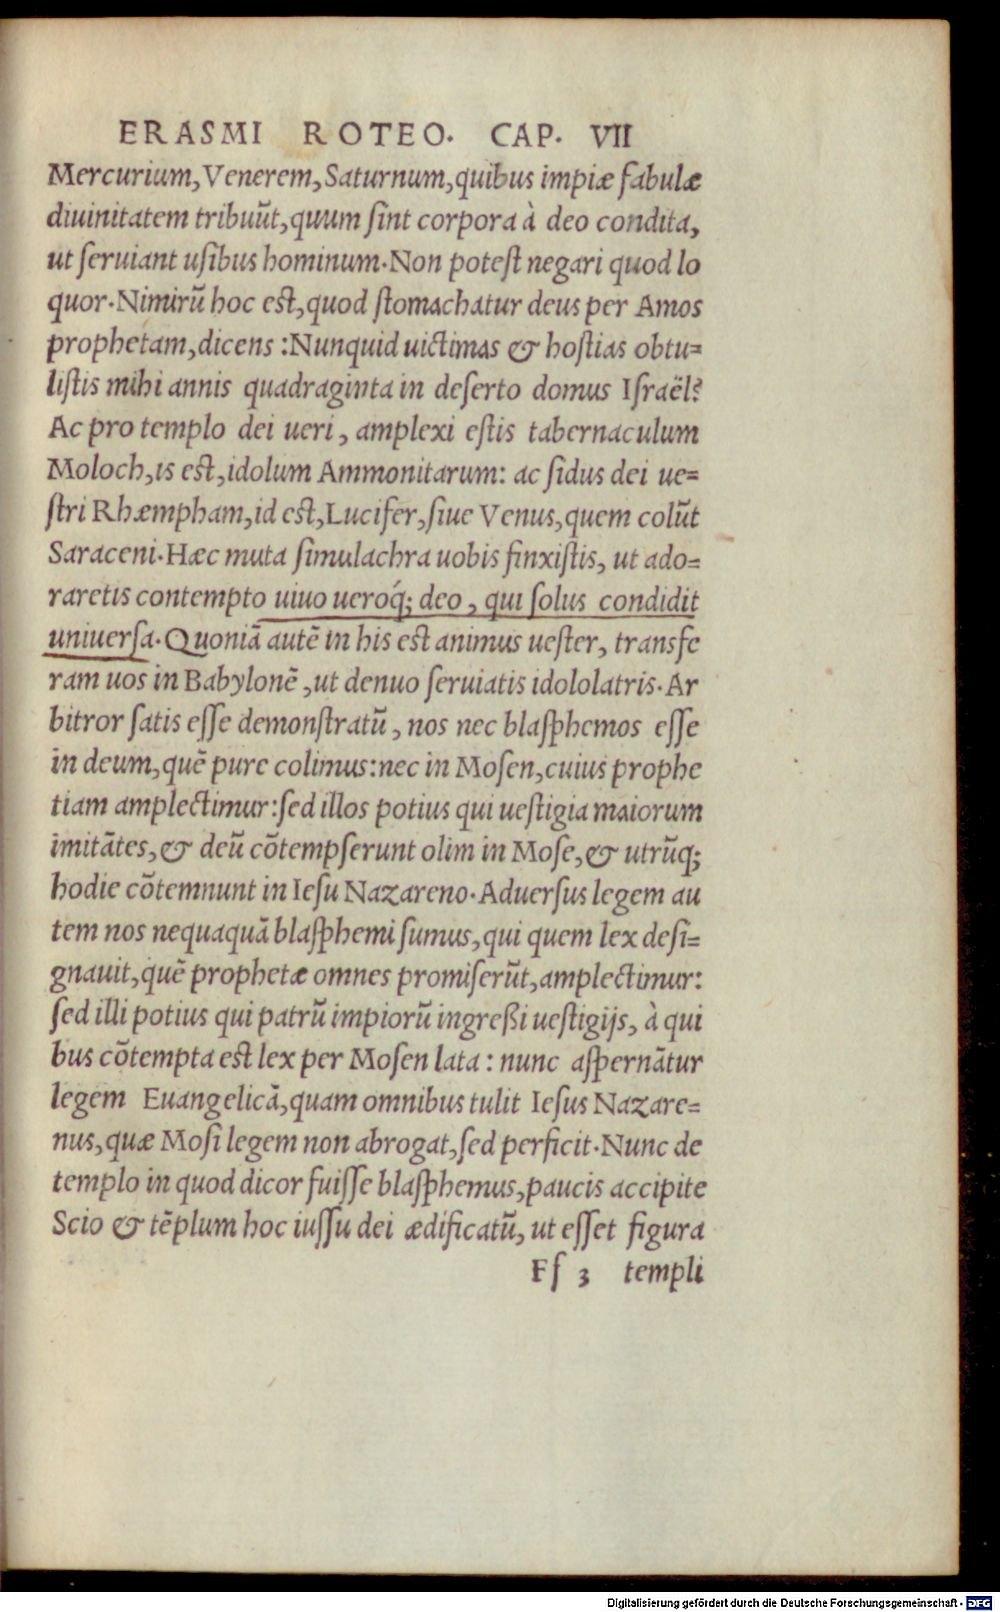 ERASMI ROTEO. CAP. VII
Mercurium, Venerem, Saturnum, quibus impiæ fabulæ
diuinitatem tribuũt, quum ſint corpora à deo condita,
ut ſeruiant uſibus hominum. Non poteſt negari quod lo
quor. Nimirũ hoc eſt, quod ſtomachatur deus per Amos
prophetam, dicens : Nunquid uictimas & hoſtias obtu=
liſtis mihi annis quadraginta in deſerto domus Iſraël?
Ac pro templo dei ueri, amplexi eſtis tabernaculum
Moloch, is eſt, idolum Ammonitarum: ac ſidus dei ue=
ſtri Rhæmpham, id eſt, Lucifer, ſiue Venus, quem colũt
Saraceni. Hæc muta ſimulachra uobis finxiſtis, ut ado=
raretis contempto uiuo ueroq́; deo, qui ſolus condidit
uniuerſa. Quoniã autẽ in his eſt animus ueſter, transfe
ram uos in Babylonẽ, ut denuo ſeruiatis idololatris. Ar
bitror ſatis eſſe demonſtratũ, nos nec blaſphemos eſſe
in deum, quẽ pure colimus: nec in Moſen, cuius prophe
tiam amplectimur: ſed illos potius qui ueſtigia maiorum
imitãtes, & deũ cõtempſerunt olim in Moſe, & utrũq;
hodie cõtemnunt in Ieſu Nazareno. Aduerſus legem au
tem nos nequaquã blaſphemi ſumus, qui quem lex deſi=
gnauit, quẽ prophetæ omnes promiſerũt, amplectimur:
ſed illi potius qui patrũ impiorũ ingreßi ueſtigijs, à qui
bus cõtempta eſt lex per Moſen lata : nunc aſpernãtur
legem Euangelicã, quam omnibus tulit Ieſus Nazare=
nus, quæ Moſi legem non abrogat, ſed perficit. Nunc de
templo in quod dicor fuiſſe blaſphemus, paucis accipite
Scio & tẽplum hoc iuſſu dei ædificatũ, ut eſſet figura
Fſ 3 templi
Digitalisierung gefördert durch die Deutsche Forschungsgemeinschaft - DFG